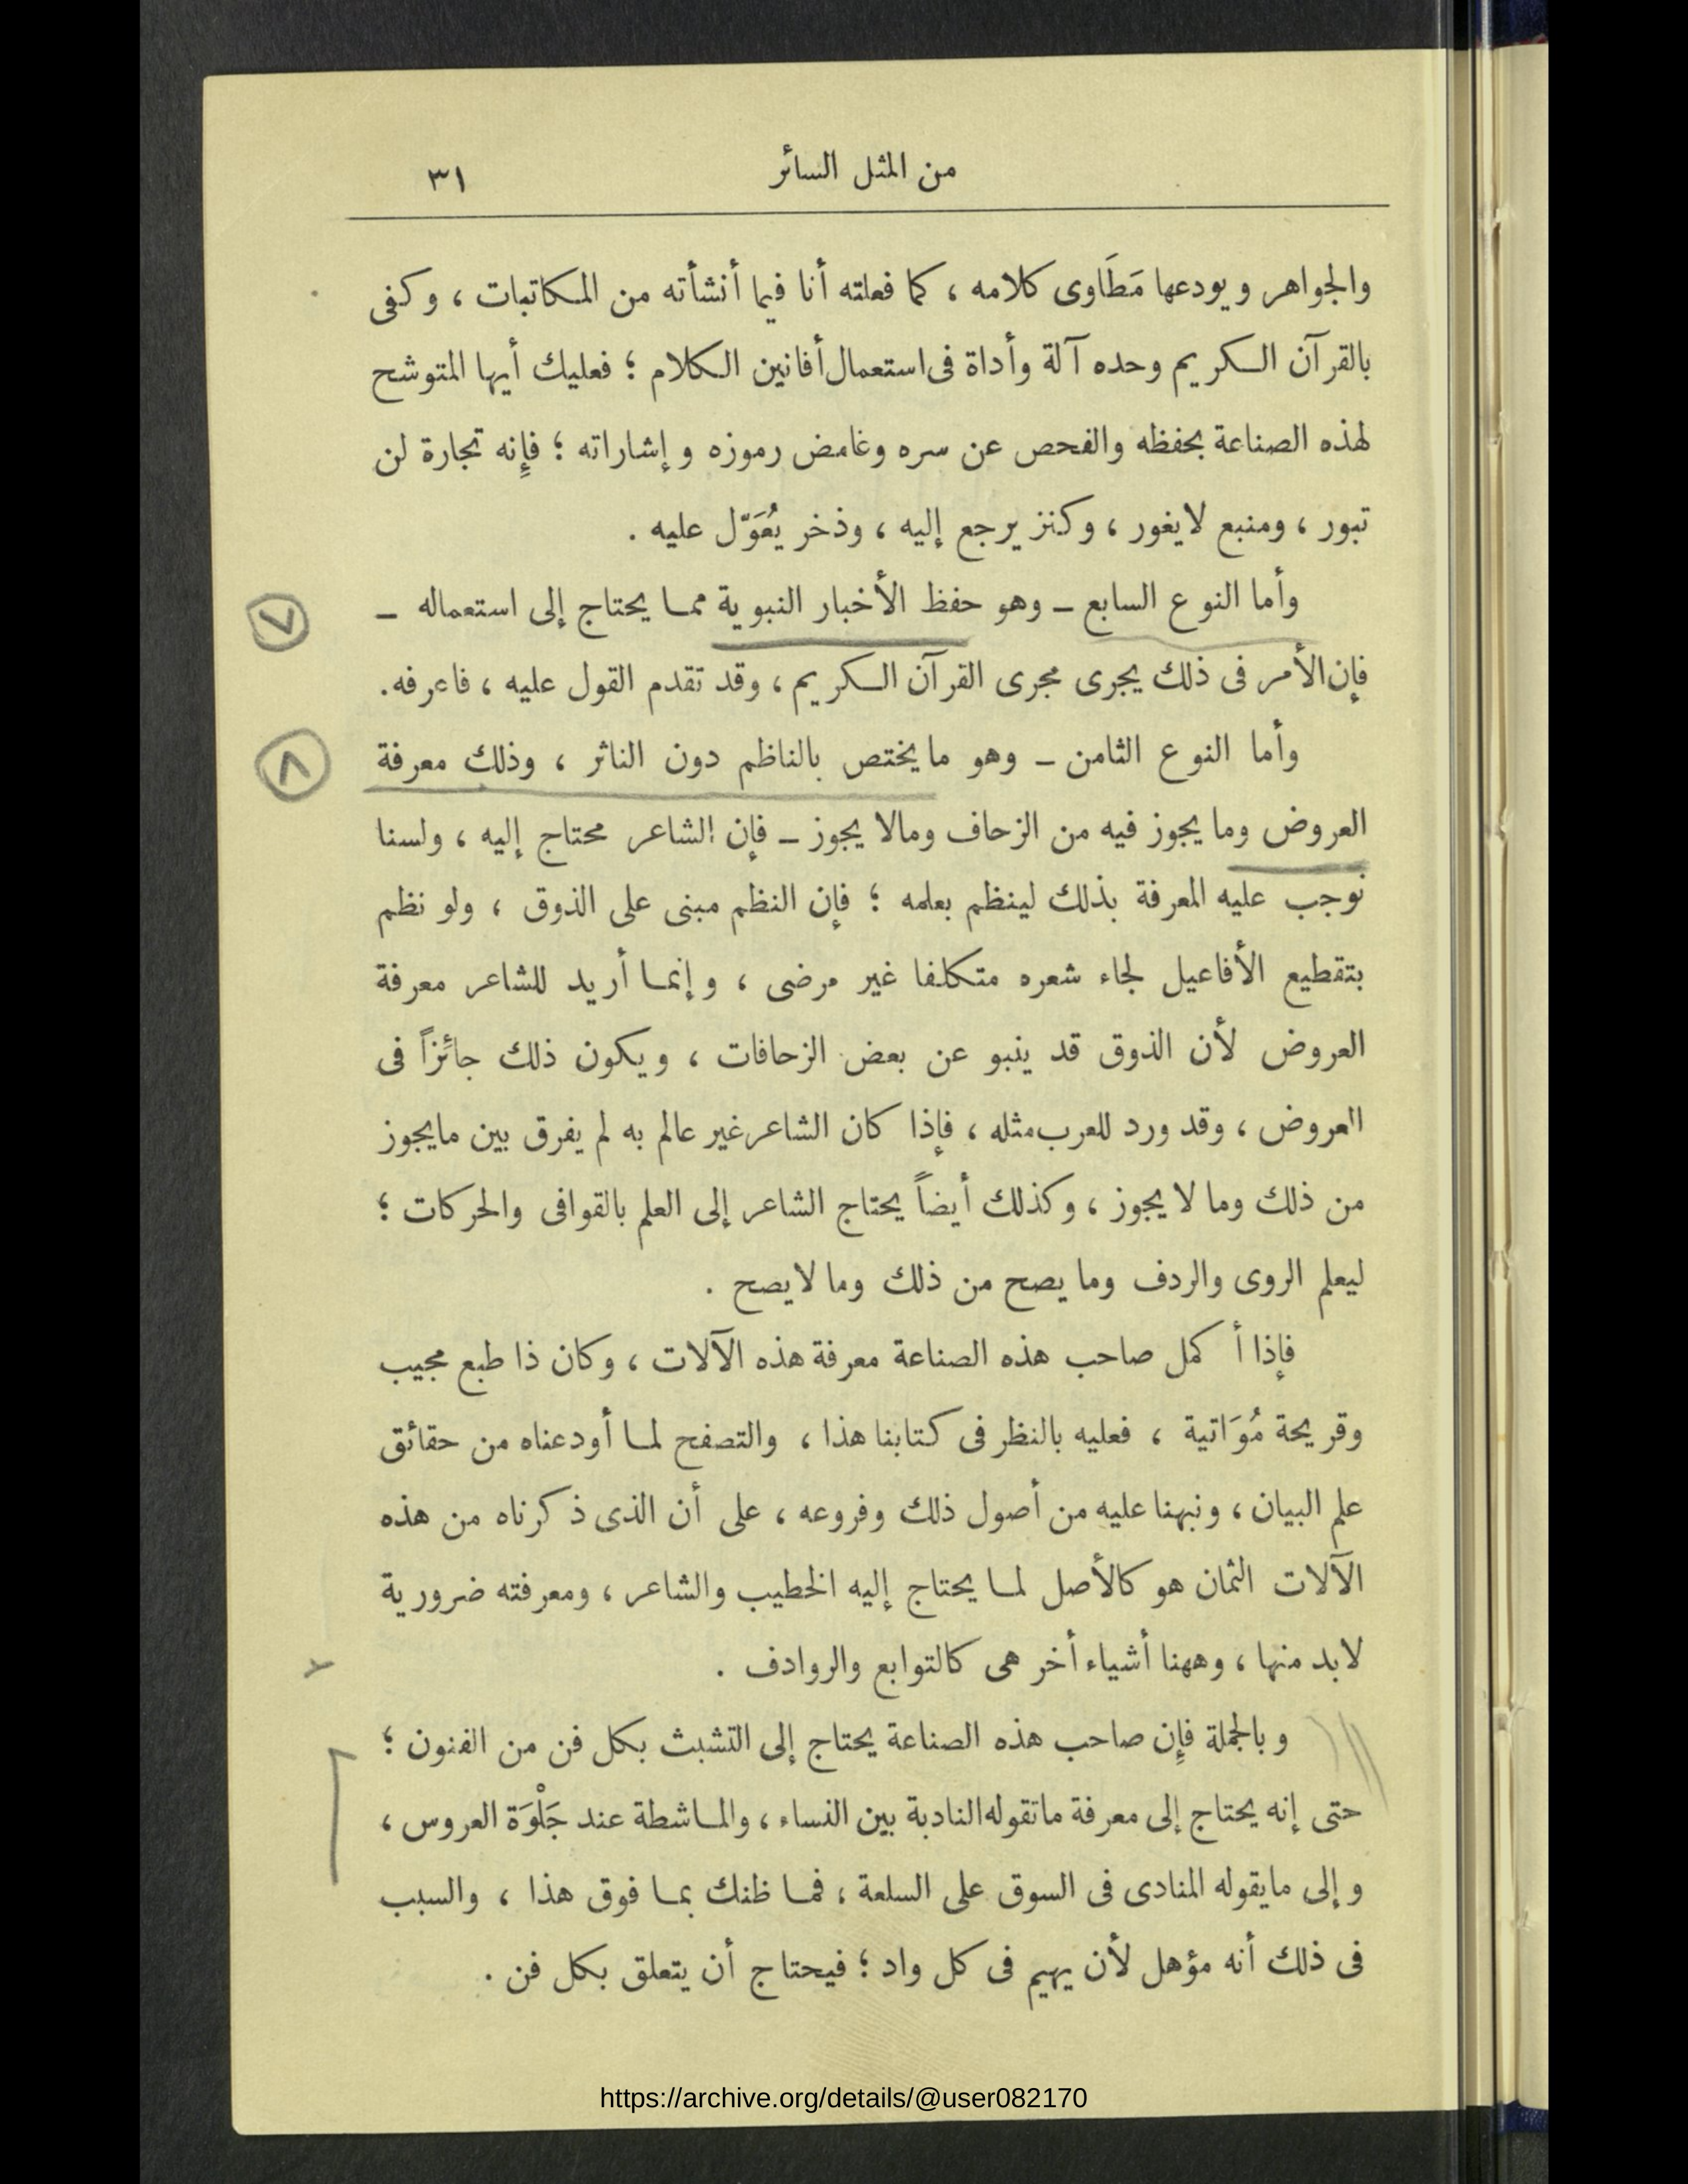 من المثل السائر ٣١
والجواهر ويودعها مَطَاوى كلامه ، كما فعلته أنا فيما أنشأته من المكاتبات ، وكفى
بالقرآن الكريم وحده آلة وأداة فى استعمال أفانين الكلام ؛ فعليك أيها المتوشح
لهذه الصناعة بحفظه والفحص عن سره وغامض رموزه وإشاراته ؛ فإنه تجارة لن
تبور ، ومنبع لايغور ، وكنز يرجع إليه ، وذخر يُعَوّل عليه .
وأما النوع السابع – وهو حفظ الأخبار النبوية مما يحتاج إلى استعماله –
٧
فإن الأمر فى ذلك يجرى مجرى القرآن الكريم ، وقد تقدم القول عليه ، فاعرفه .
وأما النوع الثامن – وهو مايختص بالناظم دون الناثر ، وذلك معرفة
٨
العروض وما يجوز فيه من الزحاف ومالا يجوز – فإن الشاعر محتاج إليه ، ولسنا
نوجب عليه المعرفة بذلك لينظم بعلمه ؛ فإن النظم مبنى على الذوق ، ولو نظم
بتقطيع الأفاعيل لجاء شعره متكلفا غير مرضى ، وإنما أريد للشاعر معرفة
العروض لأن الذوق قد ينبو عن بعض الزحافات ، ويكون ذلك جائزاً فى
العروض ، وقد ورد للعرب مثله ، فإذا كان الشاعر غير عالم به لم يفرق بين مايجوز
من ذلك وما لا يجوز ، وكذلك أيضاً يحتاج الشاعر إلى العلم بالقوافى والحركات ؛
ليعلم الروى والردف وما يصح من ذلك وما لايصح .
فإذا أكمل صاحب هذه الصناعة معرفة هذه الآلات ، وكان ذا طبع مجيب
وقريحة مُوَاتية ، فعليه بالنظر فى كتابنا هذا ، والتصفح لما أودعناه من حقائق
علم البيان ، ونبهنا عليه من أصول ذلك وفروعه ، على أن الذى ذكرناه من هذه
الآلات الثمان هو كالأصل لما يحتاج إليه الخطيب والشاعر ، ومعرفته ضرورية
لابد منها ، وههنا أشياء أخر هى كالتوابع والروادف .
وبالجملة فإن صاحب هذه الصناعة يحتاج إلى التشبث بكل فن من الفنون ؛
حتى إنه يحتاج إلى معرفة ماتقوله النادبة بين النساء ، والماشطة عند جَلْوَة العروس ،
وإلى مايقوله المنادى فى السوق على السلعة ، فما ظنك بما فوق هذا ، والسبب
فى ذلك أنه مؤهل لأن يهيم فى كل واد ؛ فيحتاج أن يتعلق بكل فن .
https://archive.org/details/@user082170